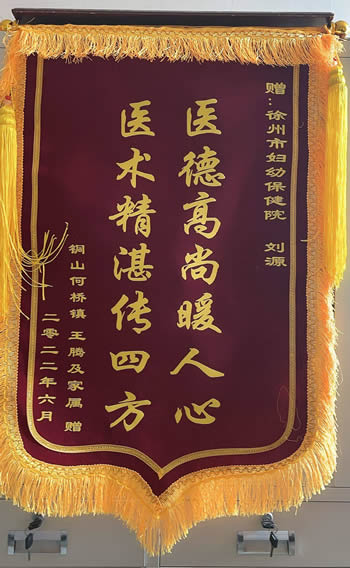 赠：徐州市妇幼保健院 刘源
医德高尚暖人心
医术精湛传四方
铜山何桥镇 王腾及家属 赠
二零二二年六月